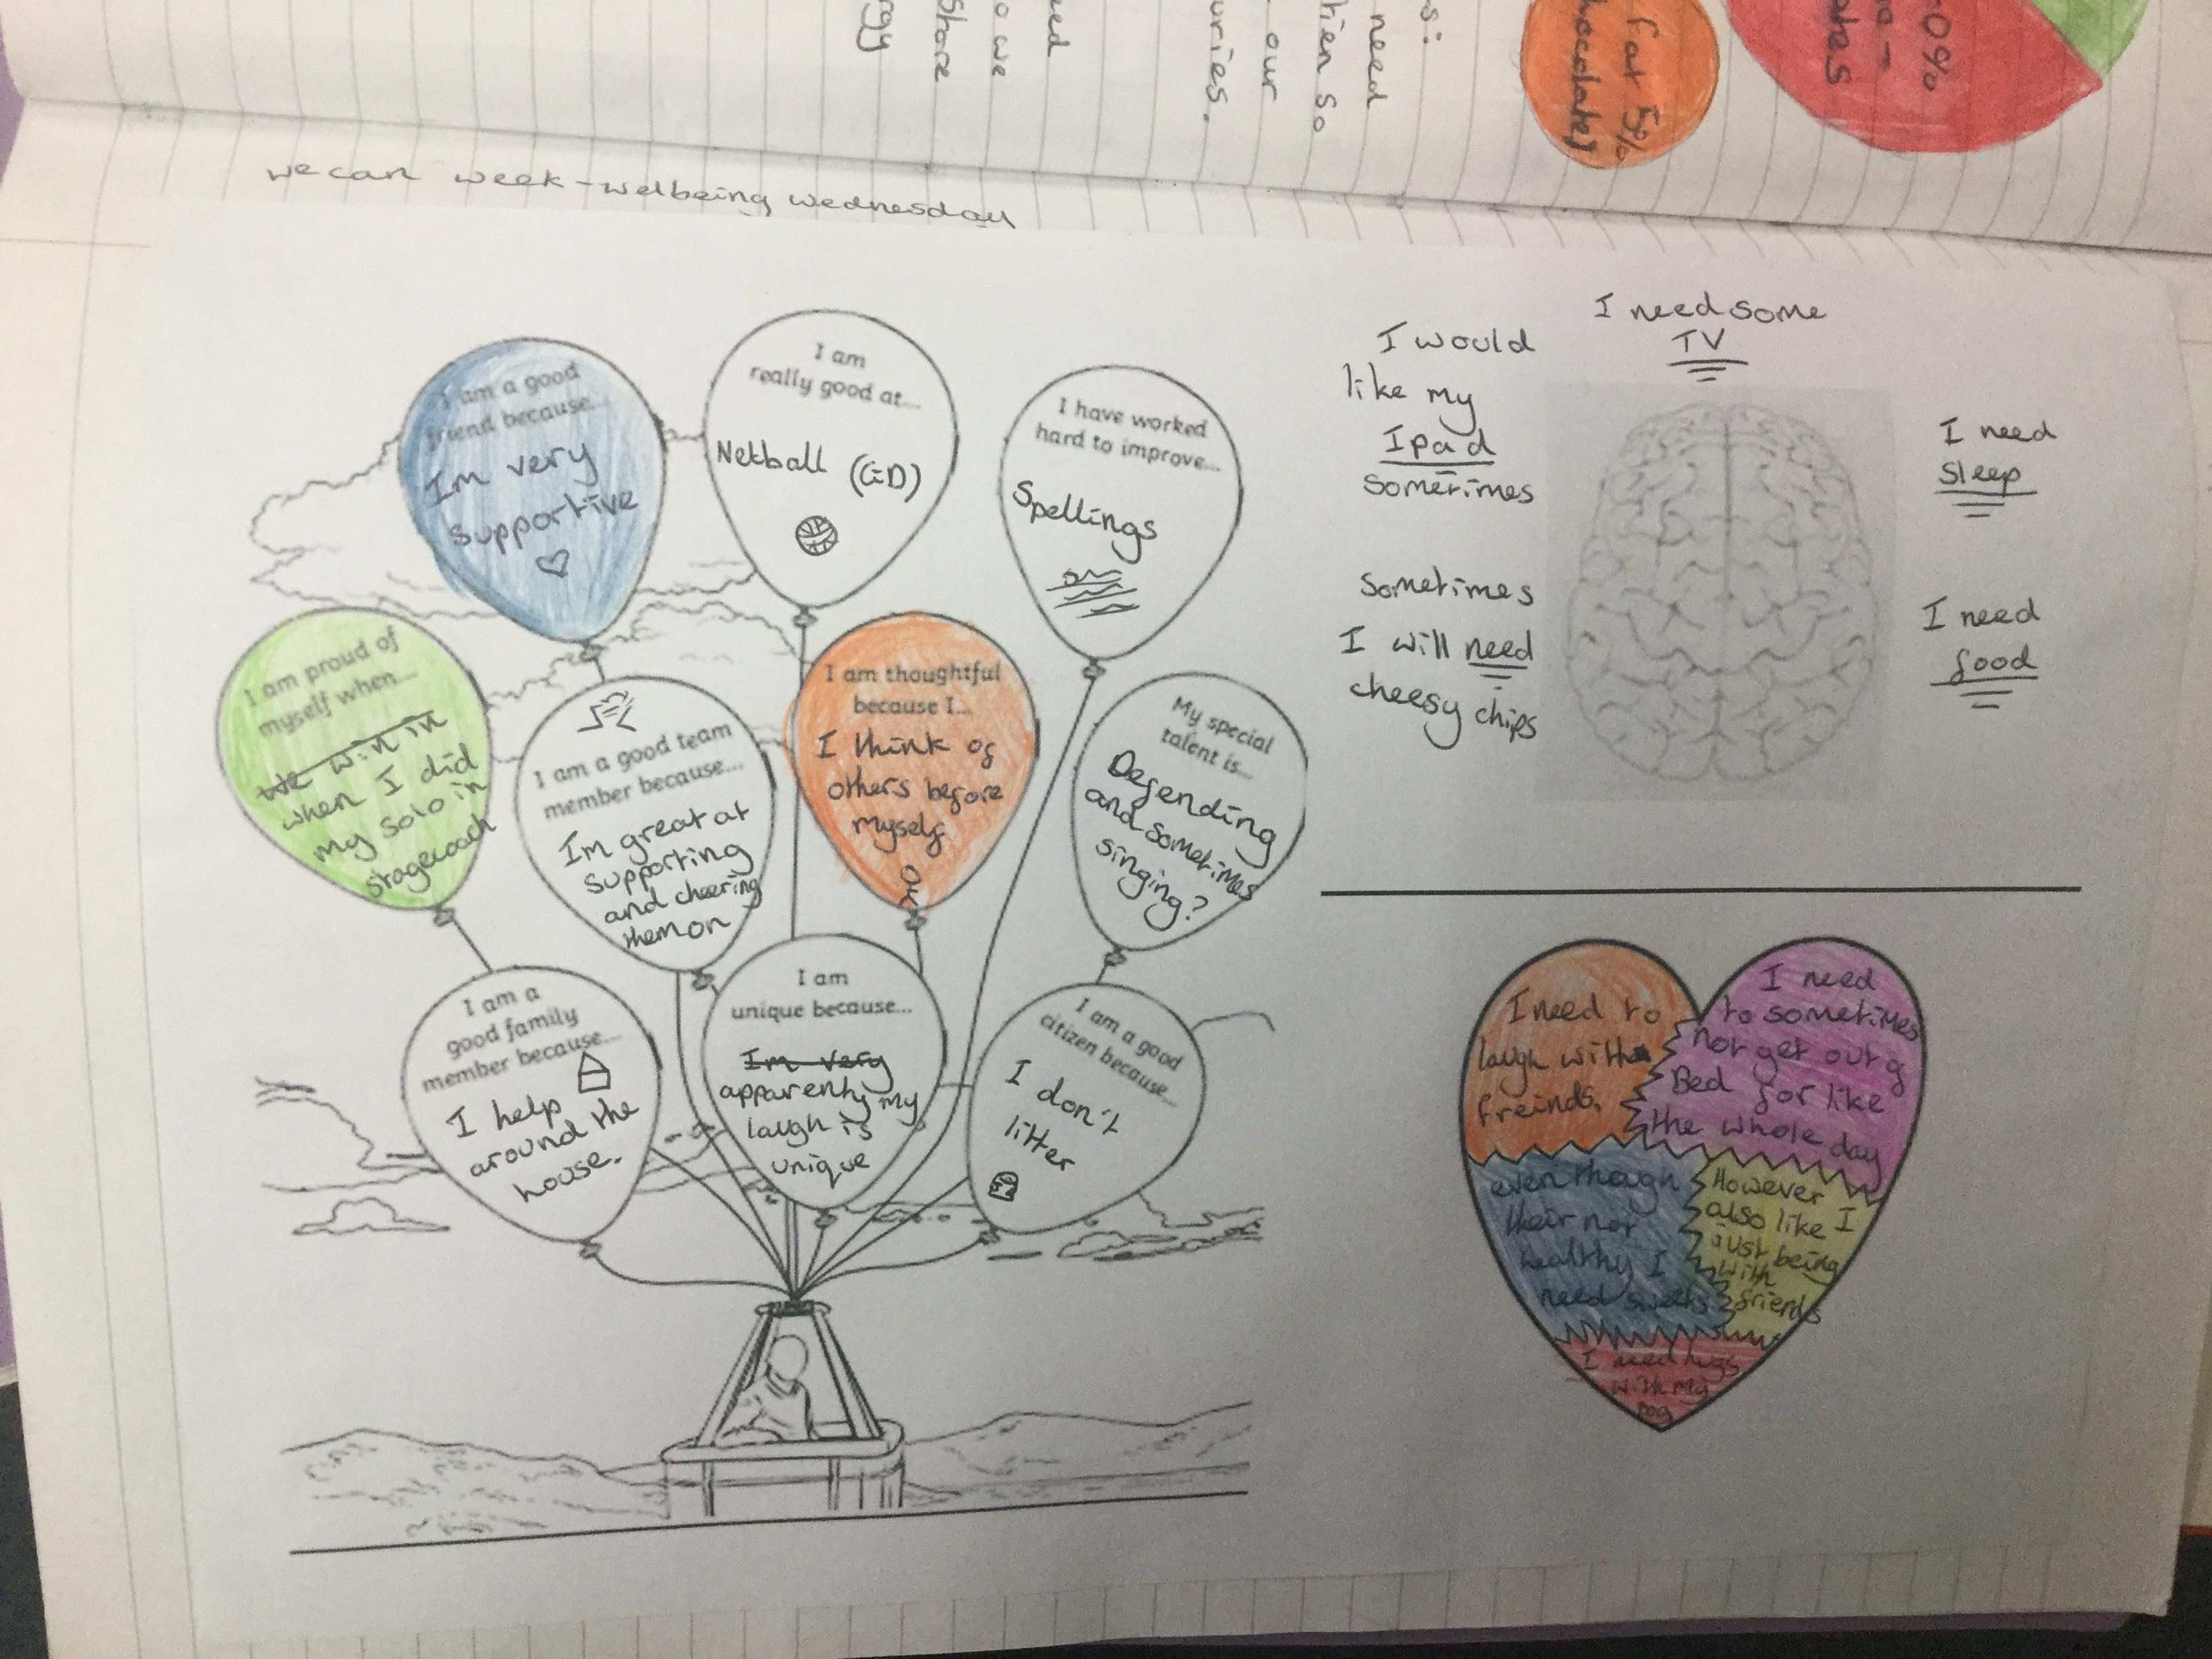 rgy
Share
o we
eed
uries.
our
hien so
need
s:
fat 5%
hocolate)
ates
0%
we can week - welbeing wednesday
I am a good
friend because...
Im very
supportive
I am
really good at...
Netball (GD)
I have worked
hard to improve...
Spellings
I am proud of
myself when...
We win in
when I did
my solo in
stagecoach
I am a good team
member because...
Im great at
supporting
and cheering
them on
I am thoughtful
because I...
I think of
others before
myself
My special
talent is...
Defending
and sometimes
singing?
I am a
good family
member because...
I help
around the
house.
I am
unique because...
Im very
apparently my
laugh is
unique
I am a good
citizen because...
I don't
litter
I would
like my
Ipad
sometimes
I need some
TV
I need
sleep
sometimes
I will need
cheesy chips
I need
food
I need to
laugh with
freinds.
I need
to sometimes
not get out of
Bed for like
the whole day
even though
their not
healthy I
need sweets
However
also like I
just being
with
friends
I need hugs
with my
Dog